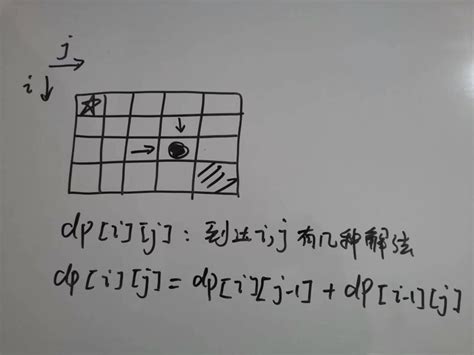 j
i
dp[i][j]：到达i,j有几种解法
dp[i][j] = dp[i][j-1] + dp[i-1][j]